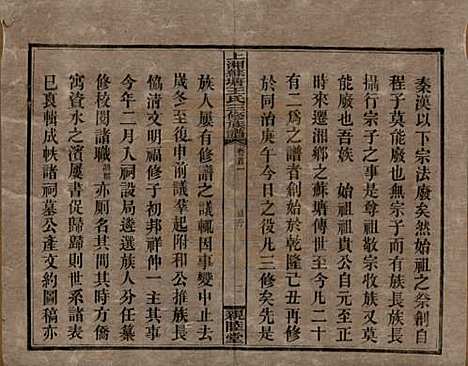 秦漢以下宗法廢矣然始祖之祭創自
程子莫能廢也無宗子而有族長族長
攝行宗子之事是尊祖敬宗收族又莫
能廢也吾族　始祖祖貴公自元至正
時來遷湘鄉之蘇塘傳世至今凡二十
有二為之譜者創始於乾隆己丑再修
於同治庚午今日之役凡三修矣先是
上湘蘇塘王氏三修族譜
卷首一
親睦堂
族人屢有修譜之議輒因事變中止去
歲冬至後申前議羣起附和公推族長
協清文明福修子初邦祥仲一主其事
今年二月入祠設局遴選族人分任纂
修校閱諸職亦厠名其間其東方僑
寓資水之濱屢書促歸歸則世系諸表
巳哀輯成帙諸祠墓公產文約圖稿亦